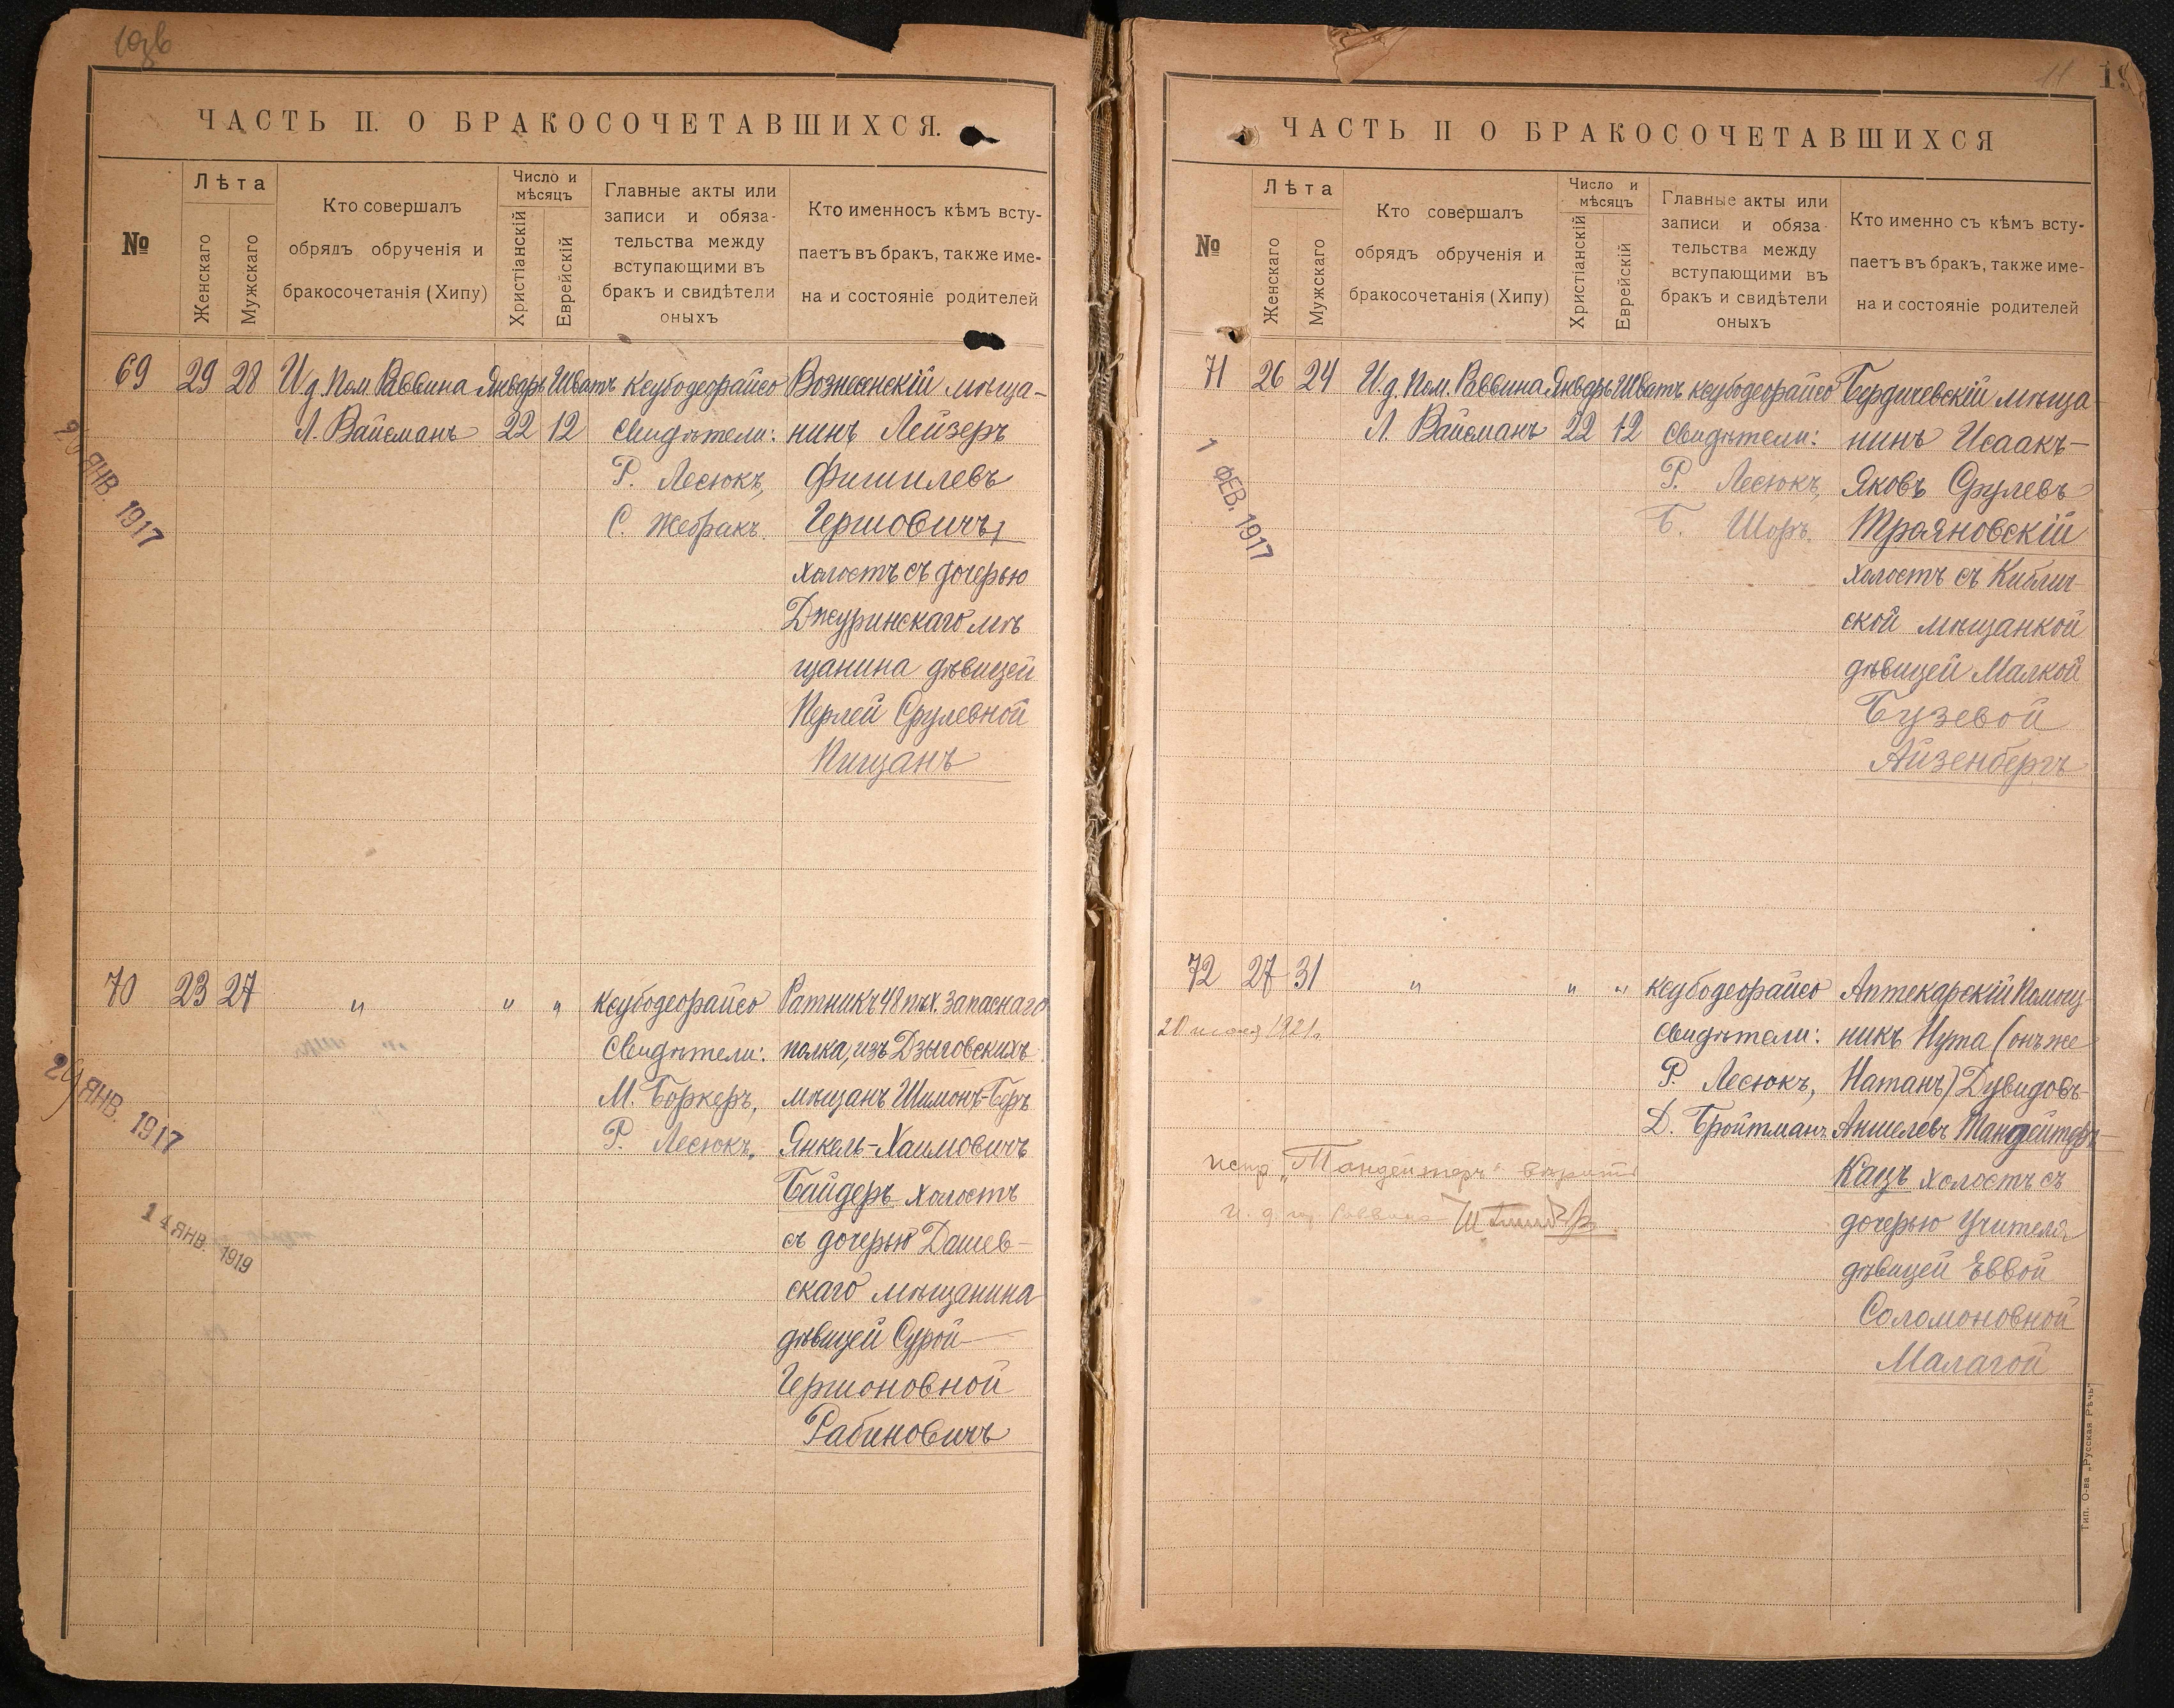 ЧАСТЬ II. О БРАКОСОЧЕТАВШИХСЯ.
№
Лѣта
Женскаго
Мужскаго
Кто совершалъ
обрядъ обрученія и
бракосочетанія (Хипу)
Число и
мѣсяцъ
Христіанскій
Еврейскій
Главные акты или
записи и обяза-
тельства между
вступающими въ
бракъ и свидѣтели
оныхъ
Кто именносъ кѣмъ всту-
паетъ въ бракъ, также име-
на и состояніе родителей
69 29 28 И. д. Пом. Раввина Январь Шватъ Ксубодеорайсо Вознесенскій мѣща-
Л. Вайсманъ 22 12 Свидѣтели: нинъ Лейзеръ
Р. Лесюкъ, Фишилевъ
С. Жебракъ. Гершовичъ,
холостъ съ дочерью
Джуринскаго мѣ
щанина дѣвицей
Перлей Срулевной
Пищанъ
ЯНВ. 1917
70 23 27 " " " Ксубодеорайсо Ратникъ 48 пѣх. запаснаго
Свидѣтели: полка, изъ Дзыговскихъ
М. Боркеръ, мѣщанъ Шимонъ-Беръ
Р. Лесюкъ. Янкель-Хаимовичъ
Байдеръ холостъ
съ дочерью Дашев-
скаго мѣщанина
дѣвицей Сурой-
Гершоновной
Рабиновичъ
29 ЯНВ. 1917
14 ЯНВ. 1919
11
ЧАСТЬ II О БРАКОСОЧЕТАВШИХСЯ
№
Лѣта
Женскаго
Мужскаго
Кто совершалъ
обрядъ обрученія и
бракосочетанія (Хипу)
Число и
мѣсяцъ
Христіанскій
Еврейскій
Главные акты или
записи и обяза-
тельства между
вступающими въ
бракъ и свидѣтели
оныхъ
Кто именно съ кѣмъ всту-
паетъ въ бракъ, также име-
на и состояніе родителей
71 26 24 И. д. Пом. Раввина Январь Шватъ Ксубодеорайсо Бердичевскій мѣща
Л. Вайсманъ 22 12 Свидѣтели: нинъ Исаакъ-
Р. Лесюкъ, Яковъ Срулевъ
Б. Шоръ. Трояновскій
холостъ съ Киблич-
ской мѣщанкой
дѣвицей Малкой
Бузевой
Айзенбергъ
1 ФЕВ. 1917
72 27 31 " " " Ксубодеорайсо Аптекарскій Помощ-
Свидѣтели: никъ Нута (онъ же
Р. Лесюкъ, Натанъ) Дувидовъ-
Д. Бройтманъ. Аншелевъ Мандейтеръ-
Кацъ холостъ съ
дочерью учителя
дѣвицей Еввой
Соломоновной
Малагой
1921
испр „Мандейтеръ" вѣрить
Тип. О-ва „Русская Рѣчь"